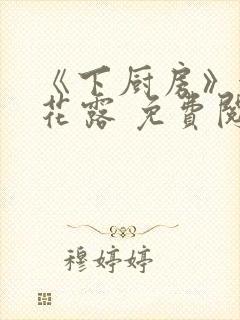 《下厨房》
花露 免費閱
穆婷婷